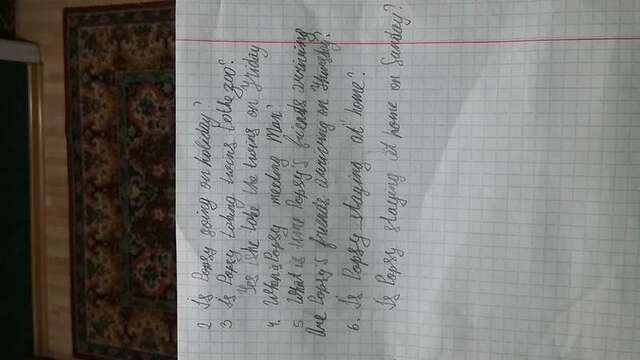 2 Is Popsy going on holiday?
3 Is Popsy taking twins to the zoo?
Yes ishe take the twins on Friday
4. When is Popsy meeting Mon?
5 What is time Popsy's friends arriving
Are Popsy's friends arriving on Thursday?
6. Is Popsy staying at home?
Is Popsy staying at home on Sanday?